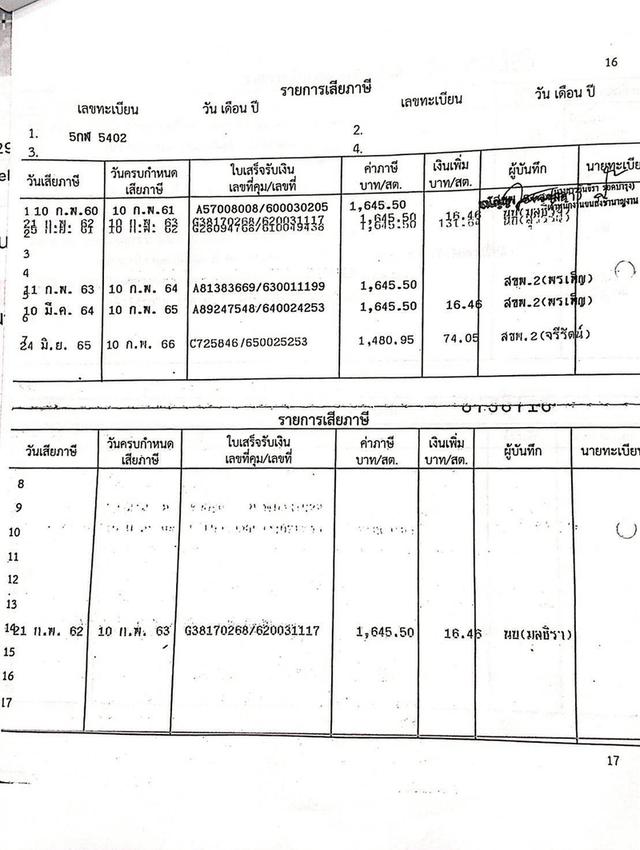 16
รายการเสียภาษี
เลขทะเบียน วัน เดือน ปี เลขทะเบียน วัน เดือน ปี
1. 5กฬ 5402 2.
3. 4.
วันเสียภาษี วันครบกำหนด ใบเสร็จรับเงิน ค่าภาษี เงินเพิ่ม ผู้บันทึก นายทะเบีย
เสียภาษี เลขที่คุม/เลขที่ บาท/สต. บาท/สต.
1 10 ก.พ.60 10 ก.พ.61 A57008008/600030205 1,645.50
21 ก.พ. 62 10 ก.พ. 63 G38170268/620031117 1,645.50 16.46 นบ(มลธิรา)
10 ก.พ. 62 G28094768/610049436 1,645.50 131.64
3
4
11 ก.พ. 63 10 ก.พ. 64 A81383669/630011199 1,645.50 สขพ.2(พรเพ็ญ)
5
10 มี.ค. 64 10 ก.พ. 65 A89247548/640024253 1,645.50 16.46 สขพ.2(พรเพ็ญ)
6
24 มิ.ย. 65 10 ก.พ. 66 C725846/650025253 1,480.95 74.05 สขพ.2(จรีรัตน์)
รายการเสียภาษี
วันเสียภาษี วันครบกำหนด ใบเสร็จรับเงิน ค่าภาษี เงินเพิ่ม ผู้บันทึก นายทะเบีย
เสียภาษี เลขที่คุม/เลขที่ บาท/สต. บาท/สต.
8
9
10
11
12
13
14 21 ก.พ. 62 10 ก.พ. 63 G38170268/620031117 1,645.50 16.46 นบ(มลธิรา)
15
16
17
17